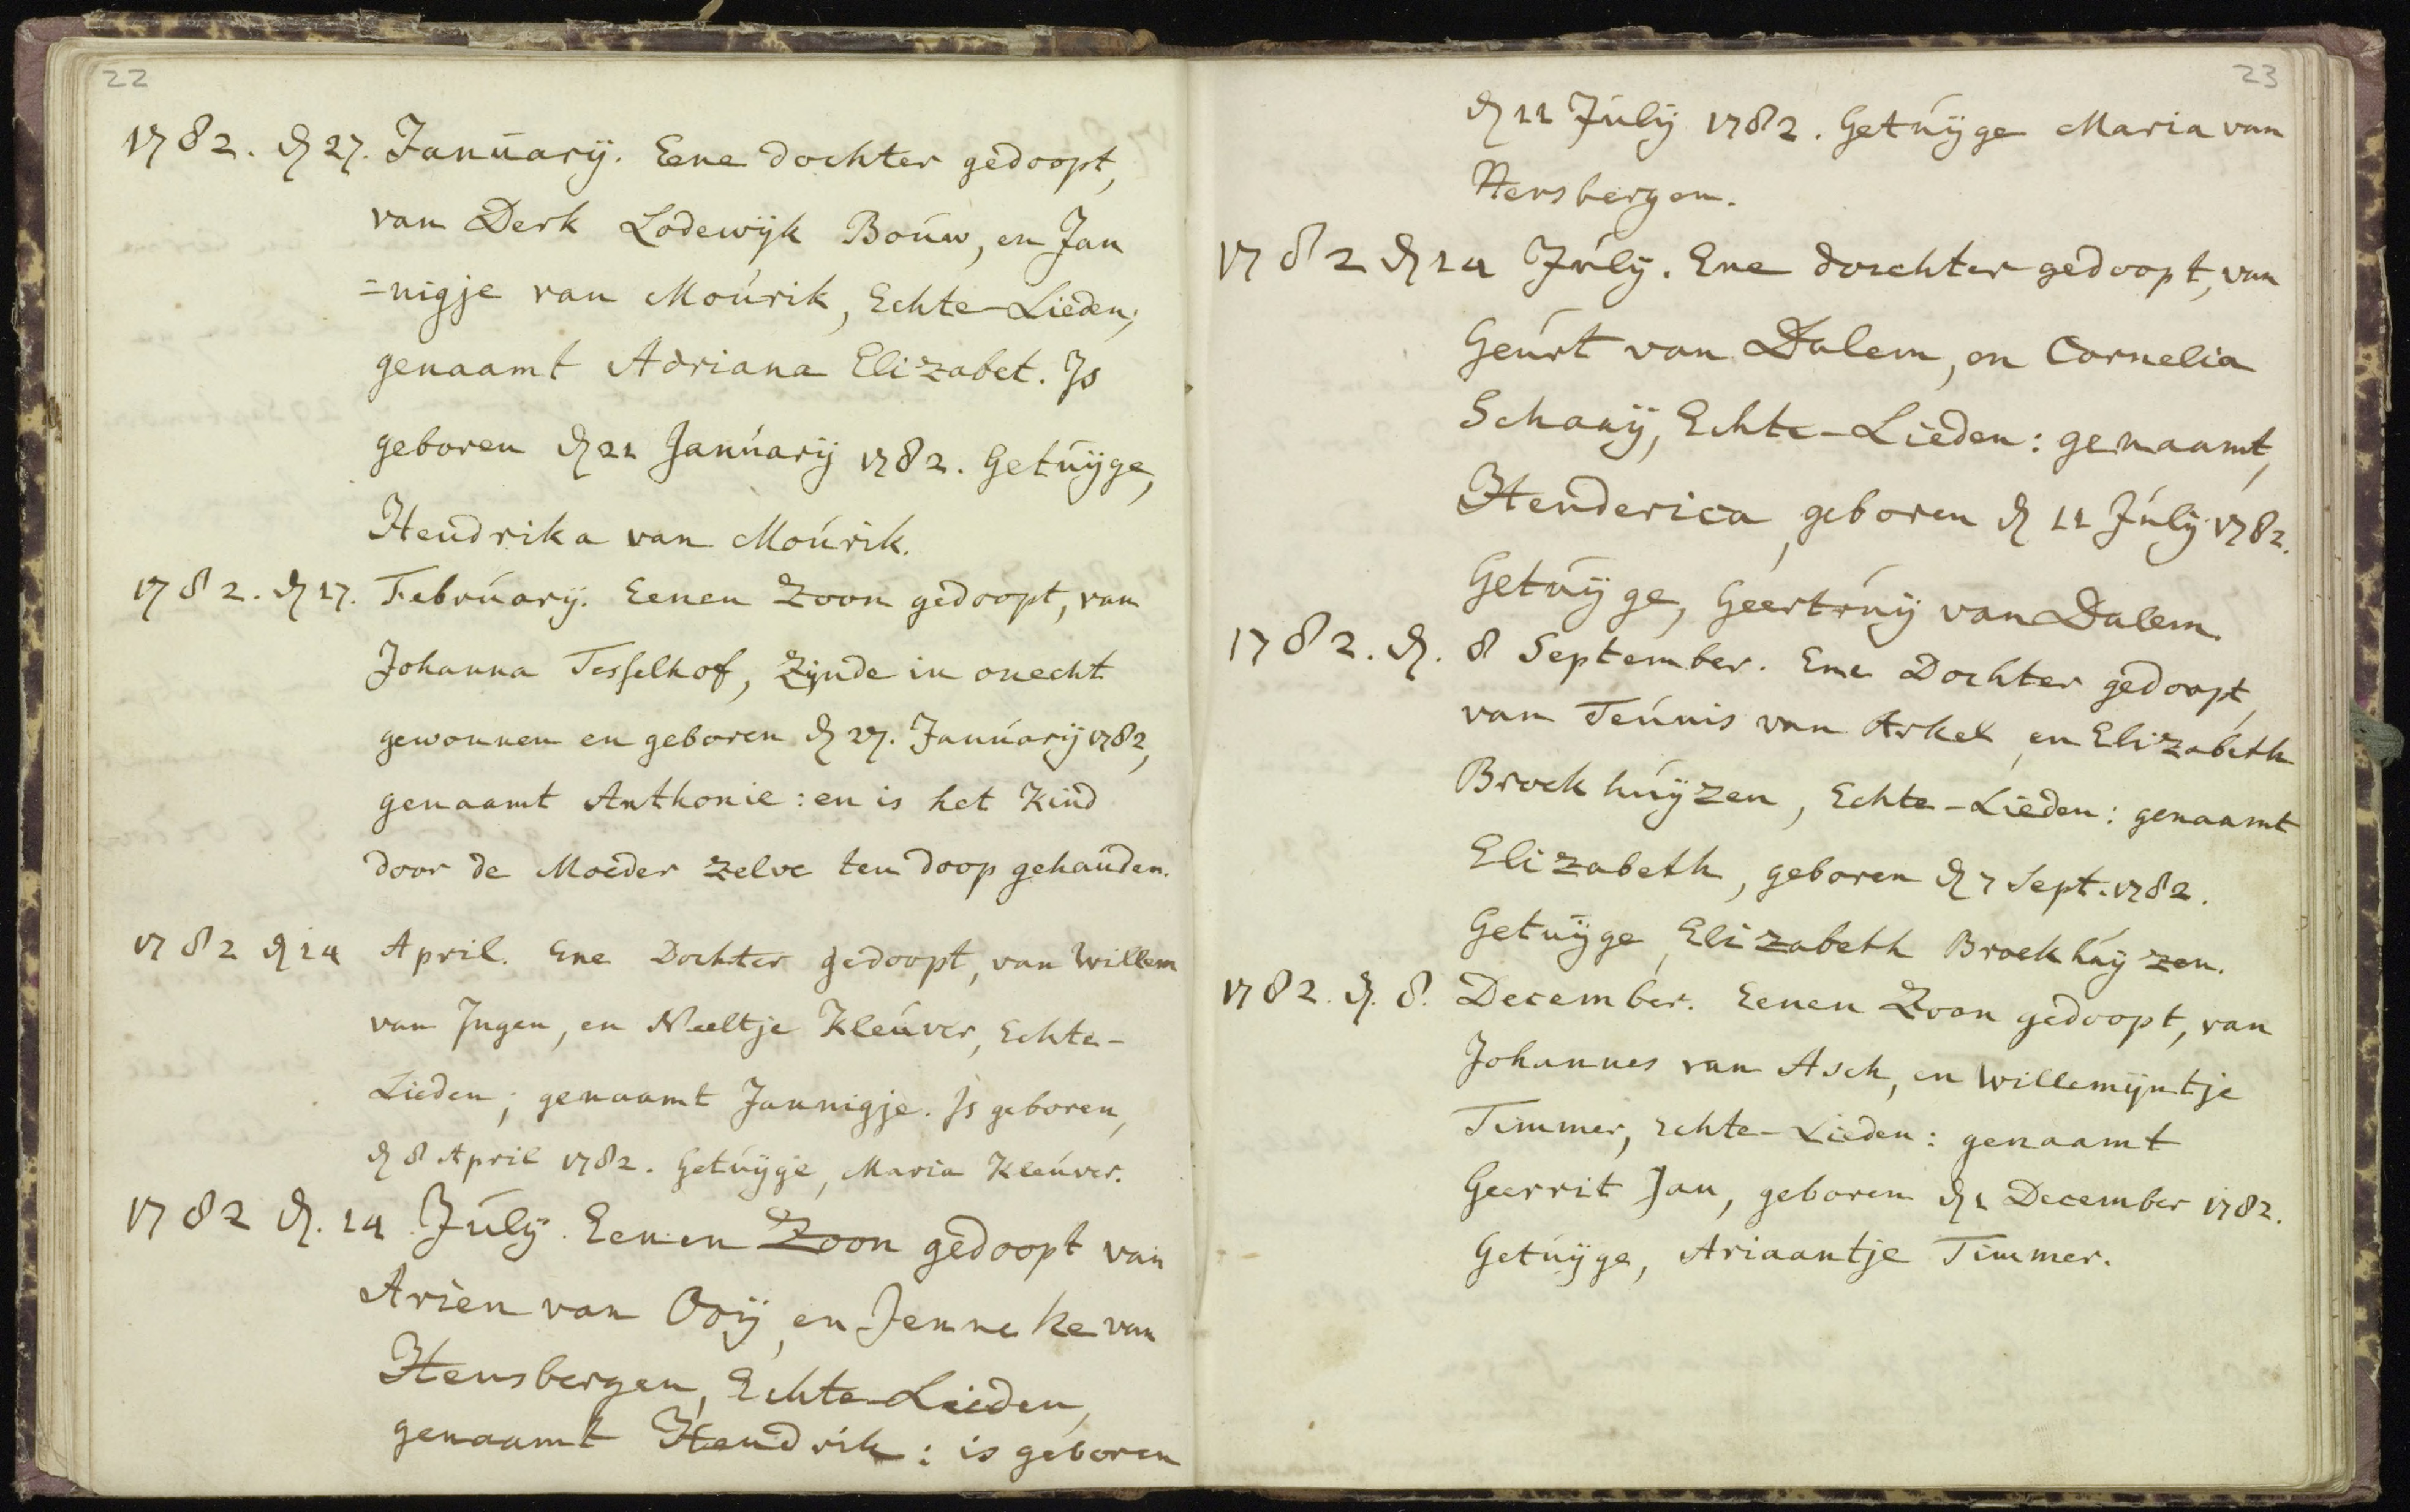 22
1782. dn 27. Januarij. Eene dochter gedoopt,
van Derk Lodewijk Bouw, en Jan
=nigje van Mourik, Echte-Lieden;
genaamt Adriana Elizabet. Is
geboren dn 21 Januarij 1782. Getuijge,
Hendrika van Mourik.
1782. dn 17. Februarij. Eenen Zoon gedoopt, van
Johanna Tesselhof, Zijnde in onecht
gewonnen en geboren dn 27. Januarij 1782,
genaamt Anthonie: en is het Kind
door de Moeder Zelve ten doop gehauden.
1782 dn 14 April. Ene Dochter gedoopt, van Willem
van Ingen, en Neeltje Kleuver, Echte-
Lieden; genaamt Jannigje. Is geboren,
dn 8 April 1782. Getuijge, Maria Kleuver.
1782 dn. 14 July. Eenen Zoon gedoopt van
Arien van Ooij, en Jenneke van
Hensbergen, Echte-Lieden,
genaamt Hendrik: is geboren
23
dn 11 Julij 1782. Getuijge Maria van
Hensbergen.
1782 dn 14 July. Ene dorchter gedoopt, van
Geurt van Dalem, en Cornelia
Schaaij, Echte-Lieden: genaamt,
Henderica, geboren dn 11 July 1782.
Getuijge, Geertruij van Dalem.
1782. dn. 8 September. Ene Dochter gedoopt,
van Teunis van Arkel, en Elizabeth
Broekhuijzen, Echte-Lieden: genaamt
Elizabeth, geboren dn 7 Sept. 1782.
Getuijge, Elizabeth Broekhuijzen.
1782. dn. 8. December. Eenen Zoon gedoopt, van
Johannes van Asch, en Willemijntje
Timmer, Echte-Lieden: genaamt
Geerrit Jan, geboren dn 1 December 1782.
Getuijge, Ariaantje Timmer.